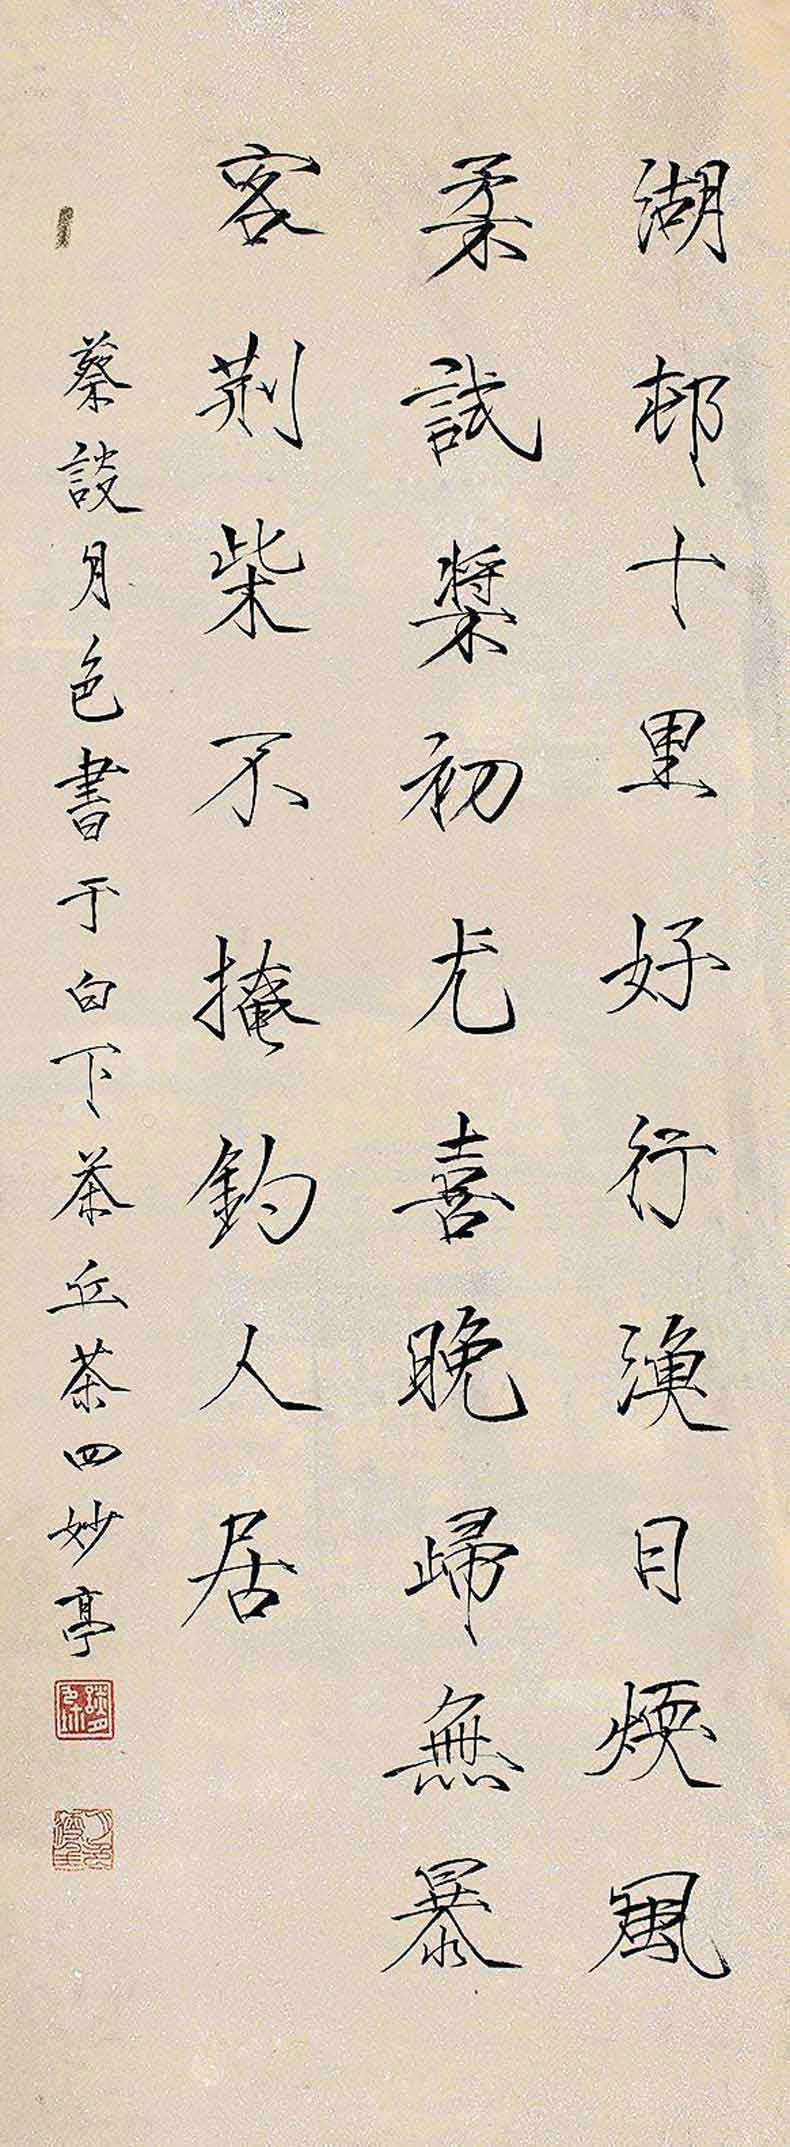 湖邨十里好行漁目煗風
柔試槳初尤喜晚歸無暴
客荆柴不掩釣人居
蔡談月色書于白下茶丘茶四妙亭